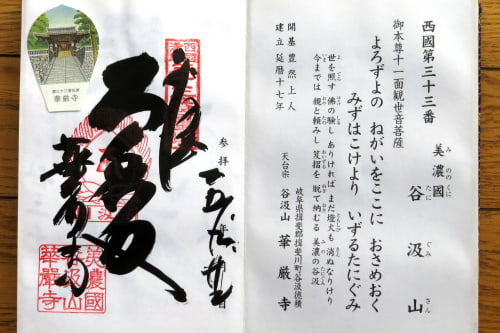 西國第三十三番
美濃國
谷汲山
御本尊十一面観世音菩薩
よろずよの ねがいをここに おさめおく
みずはこけより いずるたにぐみ
世を照す 佛の験し ありければ まだ燈火も 消ぬなりけり
今までは 親と頼みし 笈摺を 脱て納むる 美濃の谷汲
開基 豊然上人
建立 延暦十七年
岐阜県揖斐郡揖斐川町谷汲徳積
天台宗 谷汲山 華厳寺
参拝
年
美濃國
谷汲山
華厳寺
華厳寺